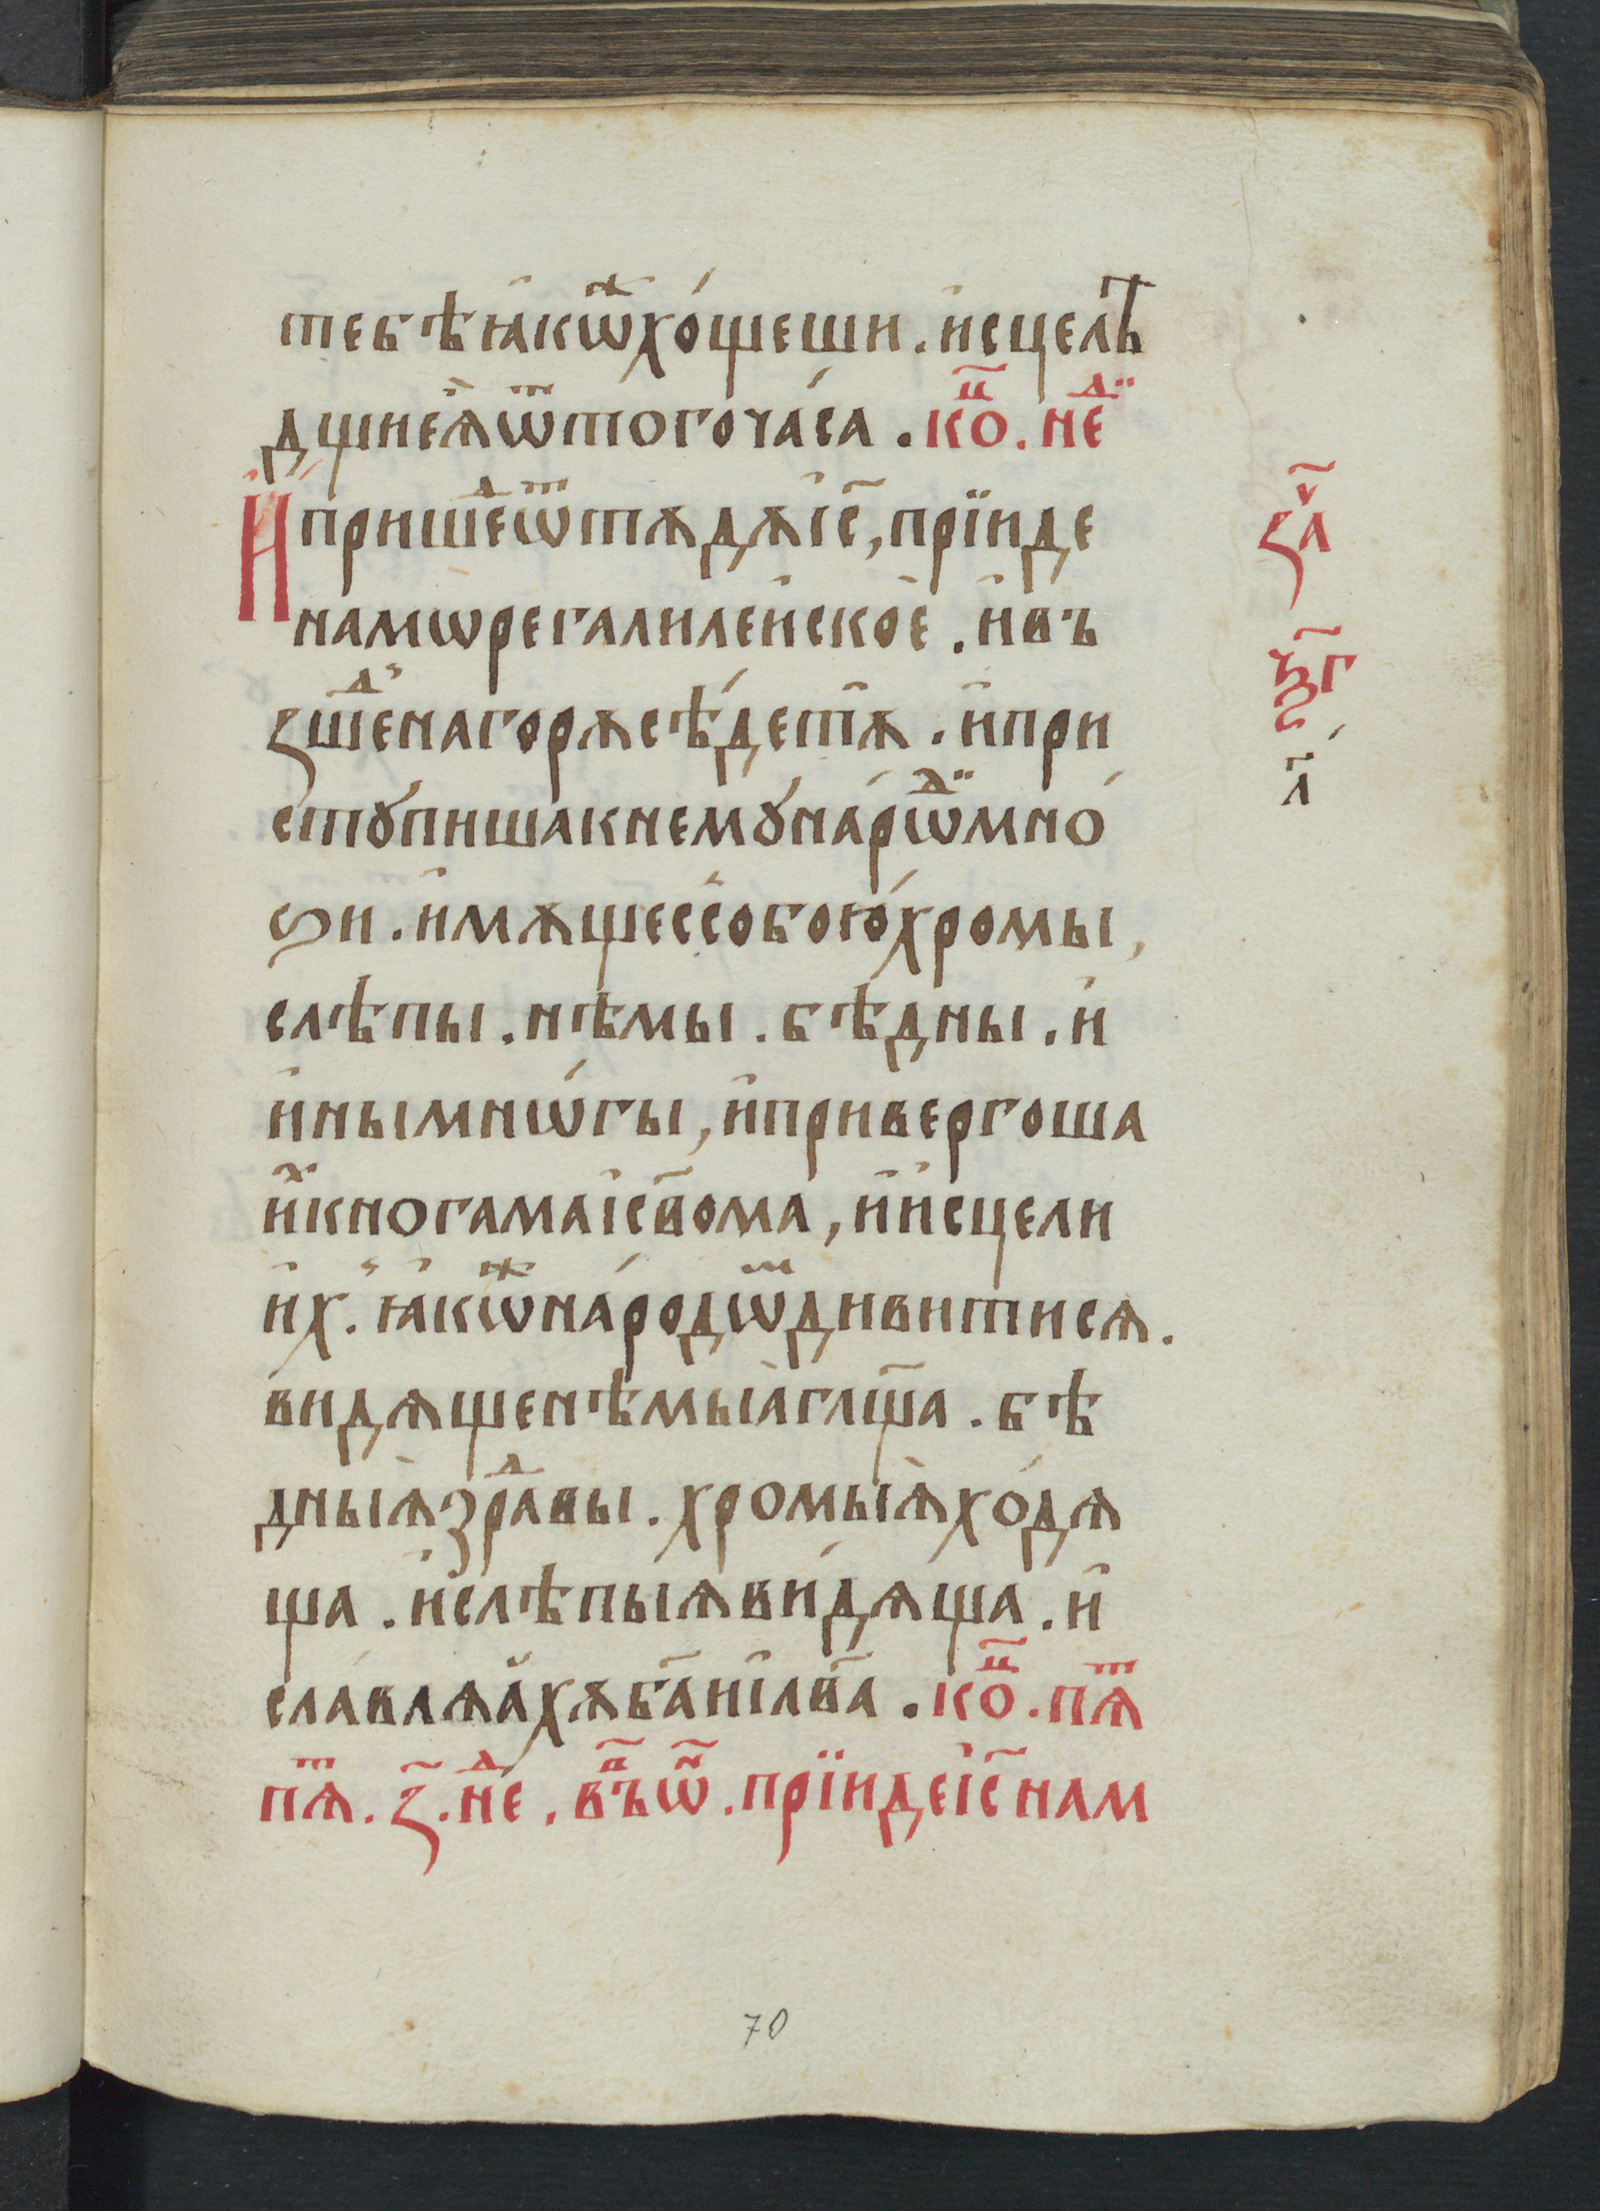 тебѣ ꙗ҆кѡⷤ хо́щеши . и҆сцелѣ
дщи еѧ҆ ѿ того час́а . коⷰ҇ . неⷣ
И҆ пришеⷣ ѿ тѧдѧ і҆с҃, прїиде
на мѡре галилеиское҆ . и҆ въ
зшеⷣ на горѧ сѣ́де тѧ҆ . и҆ при
стꙋпиша к немꙋ на́рѡⷣ мно́
ѕи . и҆мѧще с собою́ хромы,
слѣпы . нѣмы . бѣдны . и҆
и҆ны мнѡ́гы, и҆ привергоша
и҆ⷯ к ногама і҆св҃ома, и҆ и҆сцели
и҆х . ꙗ҆кѡⷤ наро́дѡⷨ дивитисѧ .
видѧще нѣмыа҆ глщ҃а . бѣ
дныѧ҆ зраⷣвы . хромыѧ҆ хо́дѧ
ща . и҆ слѣпыѧ ви́дѧща . и҆
сла́влѧа҆хѧ ба҃ ні҆лв҃а . коⷰ҇ . пѧⷮ
пѧⷮ . з҃ . неⷣ . въⷫ҇ ѡⷩ҇ . прїиде і҆с҃ на м
зл҃
ѯг҃
л҃
70